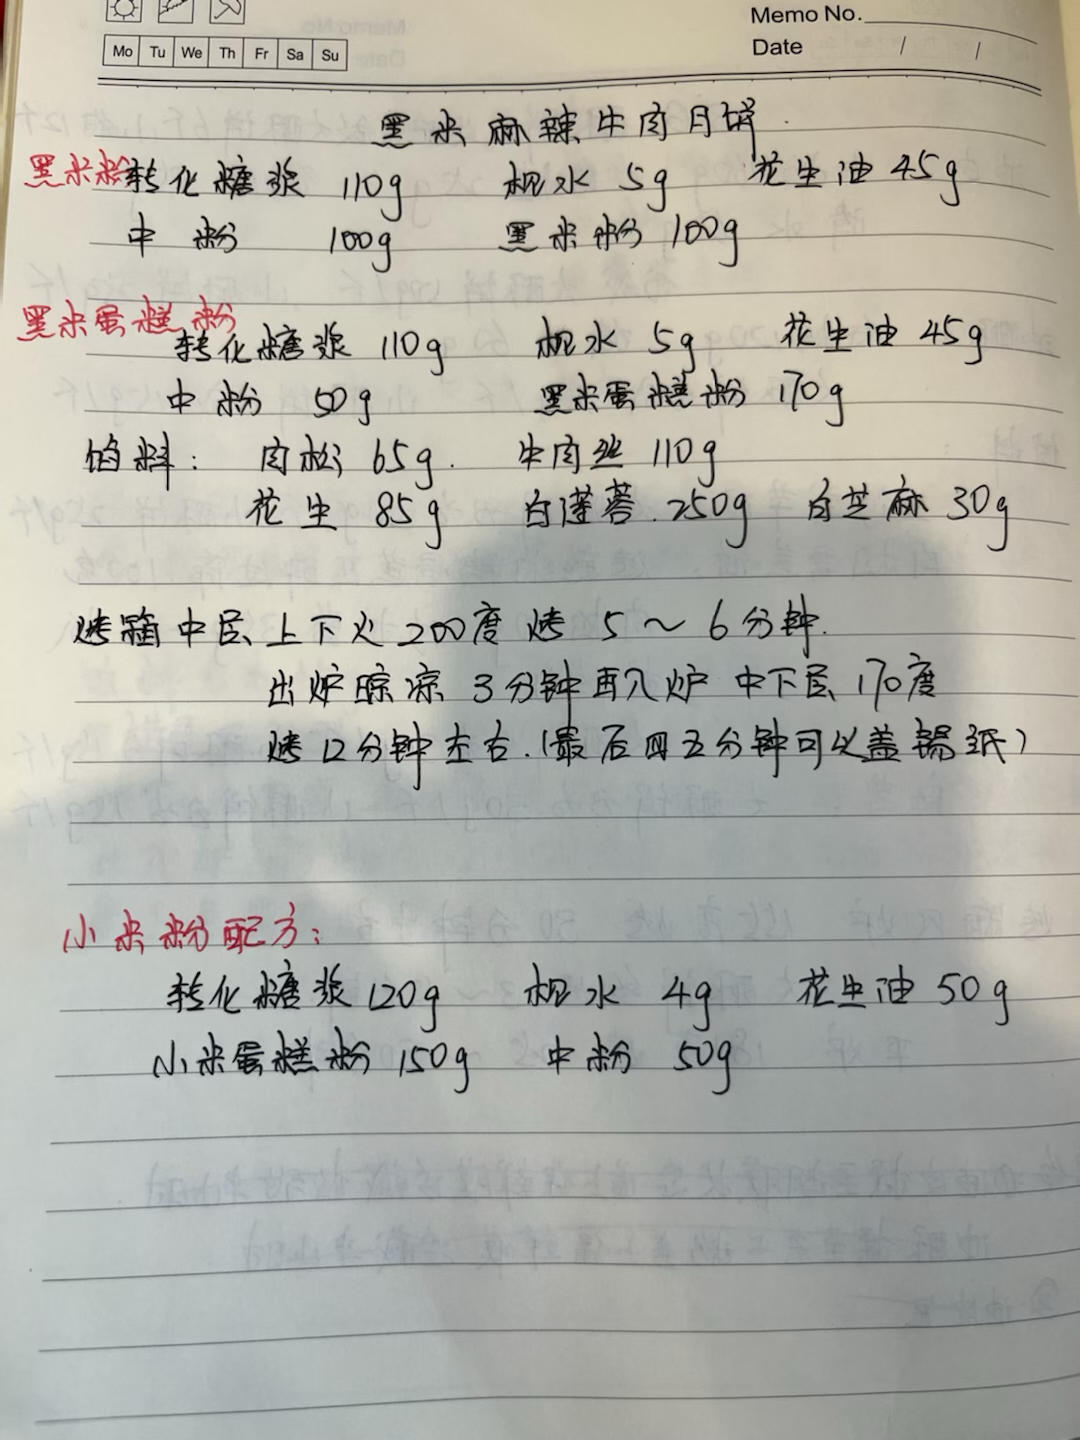 Memo No.
Date / /
Mo Tu We Th Fr Sa Su
黑米麻辣牛肉月饼.
黑米粉 转化糖浆 110g 枧水 5g 花生油 45g
中粉 100g 黑米粉 100g
黑米蛋糕粉
转化糖浆 110g 枧水 5g 花生油 45g
中粉 50g 黑米蛋糕粉 170g
馅料: 肉松 65g. 牛肉丝 110g
花生 85g 白莲蓉.250g 白芝麻 30g
烤箱中层上下火200度烤 5~6分钟.
出炉晾凉 3分钟再入炉 中下层 170度
烤12分钟左右.(最后四五分钟可以盖锡纸)
小米粉配方:
转化糖浆120g 枧水 4g 花生油 50g
小米蛋糕粉 150g 中粉 50g